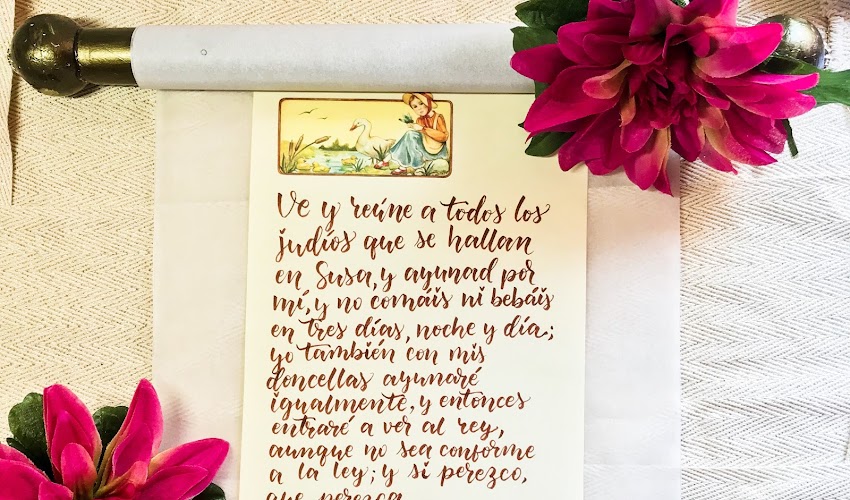 Ve y reúne a todos los
judíos que se hallan
en Susa, y ayunad por
mí, y no comáis ni bebáis
en tres días, noche y día;
yo también con mis
doncellas ayunaré
igualmente, y entonces
entraré a ver al rey,
aunque no sea conforme
a la ley; y si perezco,
que perezca